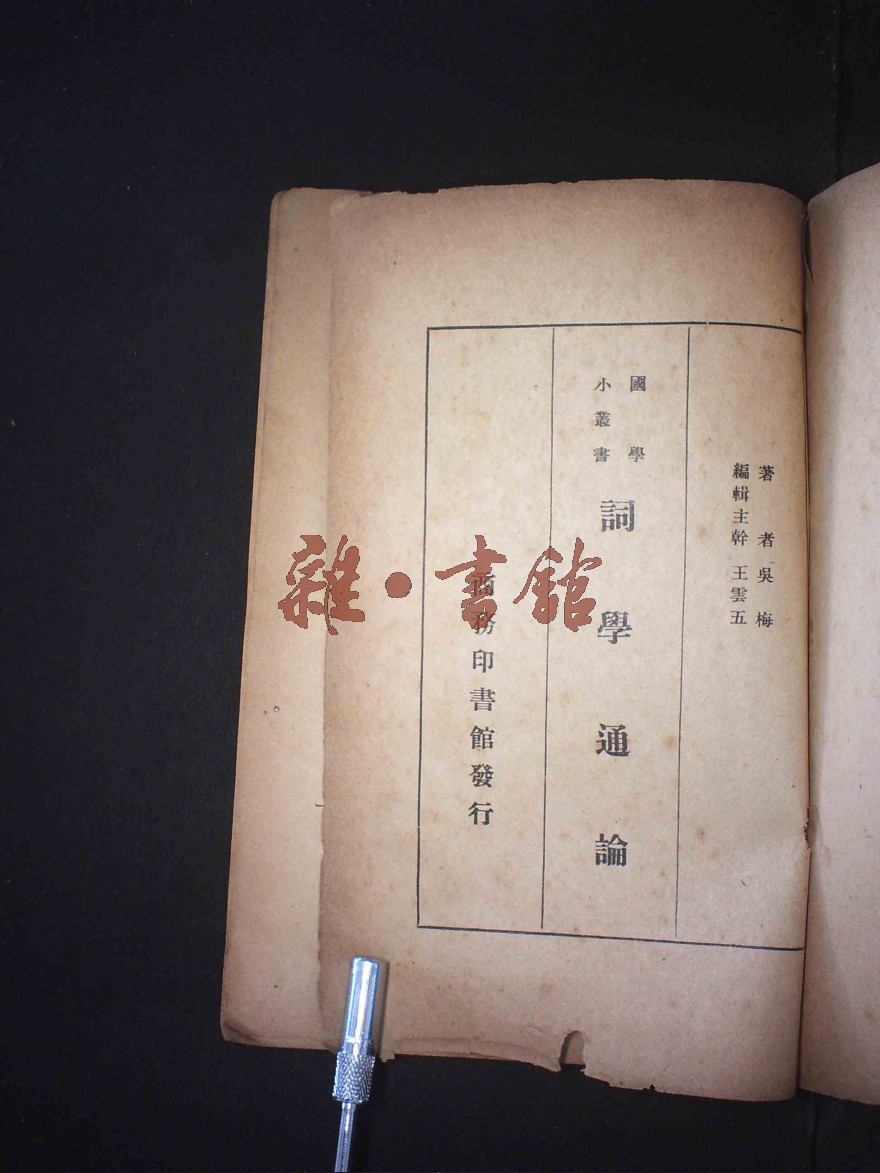 著者 吳梅
編輯主幹 王雲五
國學
小叢書
詞學通論
商務印書館發行
雜·書館